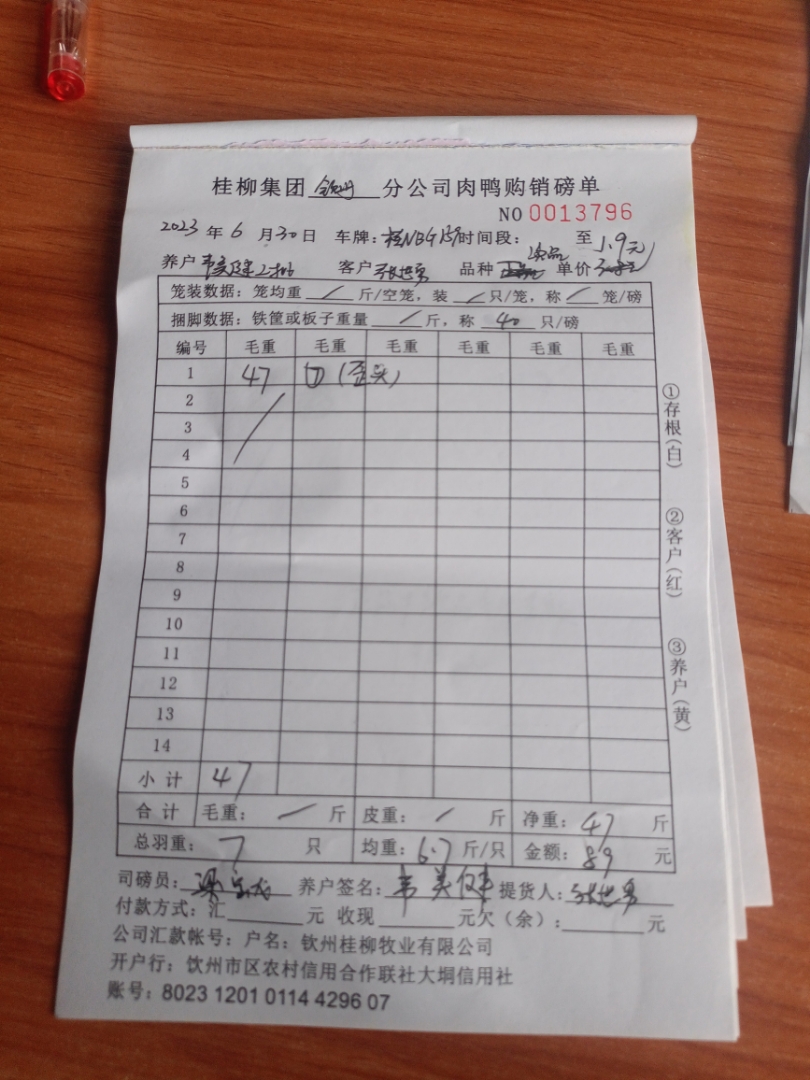 桂柳集团 钦州 分公司肉鸭购销磅单
NO 0013796
2023 年 6 月 30 日 车牌: 时间段: 至 1.9元
养户 客户 张世勇 品种 次品 单价
笼装数据: 笼均重 / 斤/空笼, 装 / 只/笼, 称 / 笼/磅
捆脚数据: 铁筐或板子重量 / 斤, 称 40 只/磅
编号 毛重 毛重 毛重 毛重 毛重 毛重
1 47 ⑦ (歪头)
2
3
4
5
6
7
8
9
10
11
12
13
14
小计 47
合计 毛重: / 斤 皮重: / 斤 净重: 47 斤
总羽重: 7 只 均重: 6.7 斤/只 金额: 89 元
司磅员: 养户签名: 韦美健 提货人: 张世勇
付款方式: 汇 元 收现 元欠(余): 元
公司汇款帐号: 户名: 钦州桂柳牧业有限公司
开户行: 钦州市区农村信用合作联社大垌信用社
账号: 8023 1201 0114 4296 07
①存根(白)
②客户(红)
③养户(黄)